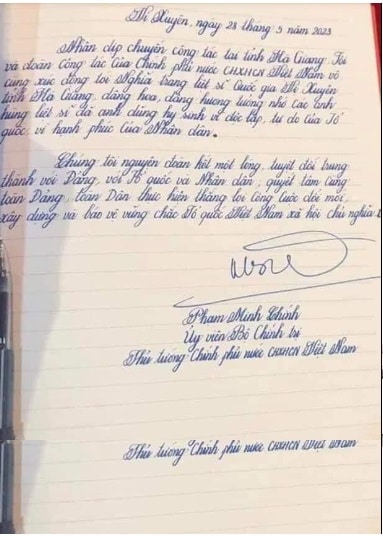 Vị Xuyên, ngày 28 tháng 5 năm 2023
Nhân dịp chuyến công tác tại tỉnh Hà Giang, Tôi
và đoàn công tác của Chính phủ nước CHXHCN Việt Nam vô
cùng xúc động tới Nghĩa trang liệt sĩ Quốc gia Vị Xuyên
tỉnh Hà Giang, dâng hoa, dâng hương tưởng nhớ các anh
hùng liệt sĩ đã anh dũng hy sinh vì độc lập, tự do của Tổ
quốc, vì hạnh phúc của Nhân dân.
Chúng tôi nguyện đoàn kết một lòng, tuyệt đối trung
thành với Đảng, với Tổ quốc và Nhân dân, quyết tâm cùng
toàn Đảng, toàn Dân thực hiện thắng lợi công cuộc đổi mới,
xây dựng và bảo vệ vững chắc Tổ quốc Việt Nam xã hội chủ nghĩa
Phạm Minh Chính
Ủy viên Bộ Chính trị
Thủ tướng Chính phủ nước CHXHCN Việt Nam
Thủ tướng Chính phủ nước CHXHCN Việt Nam